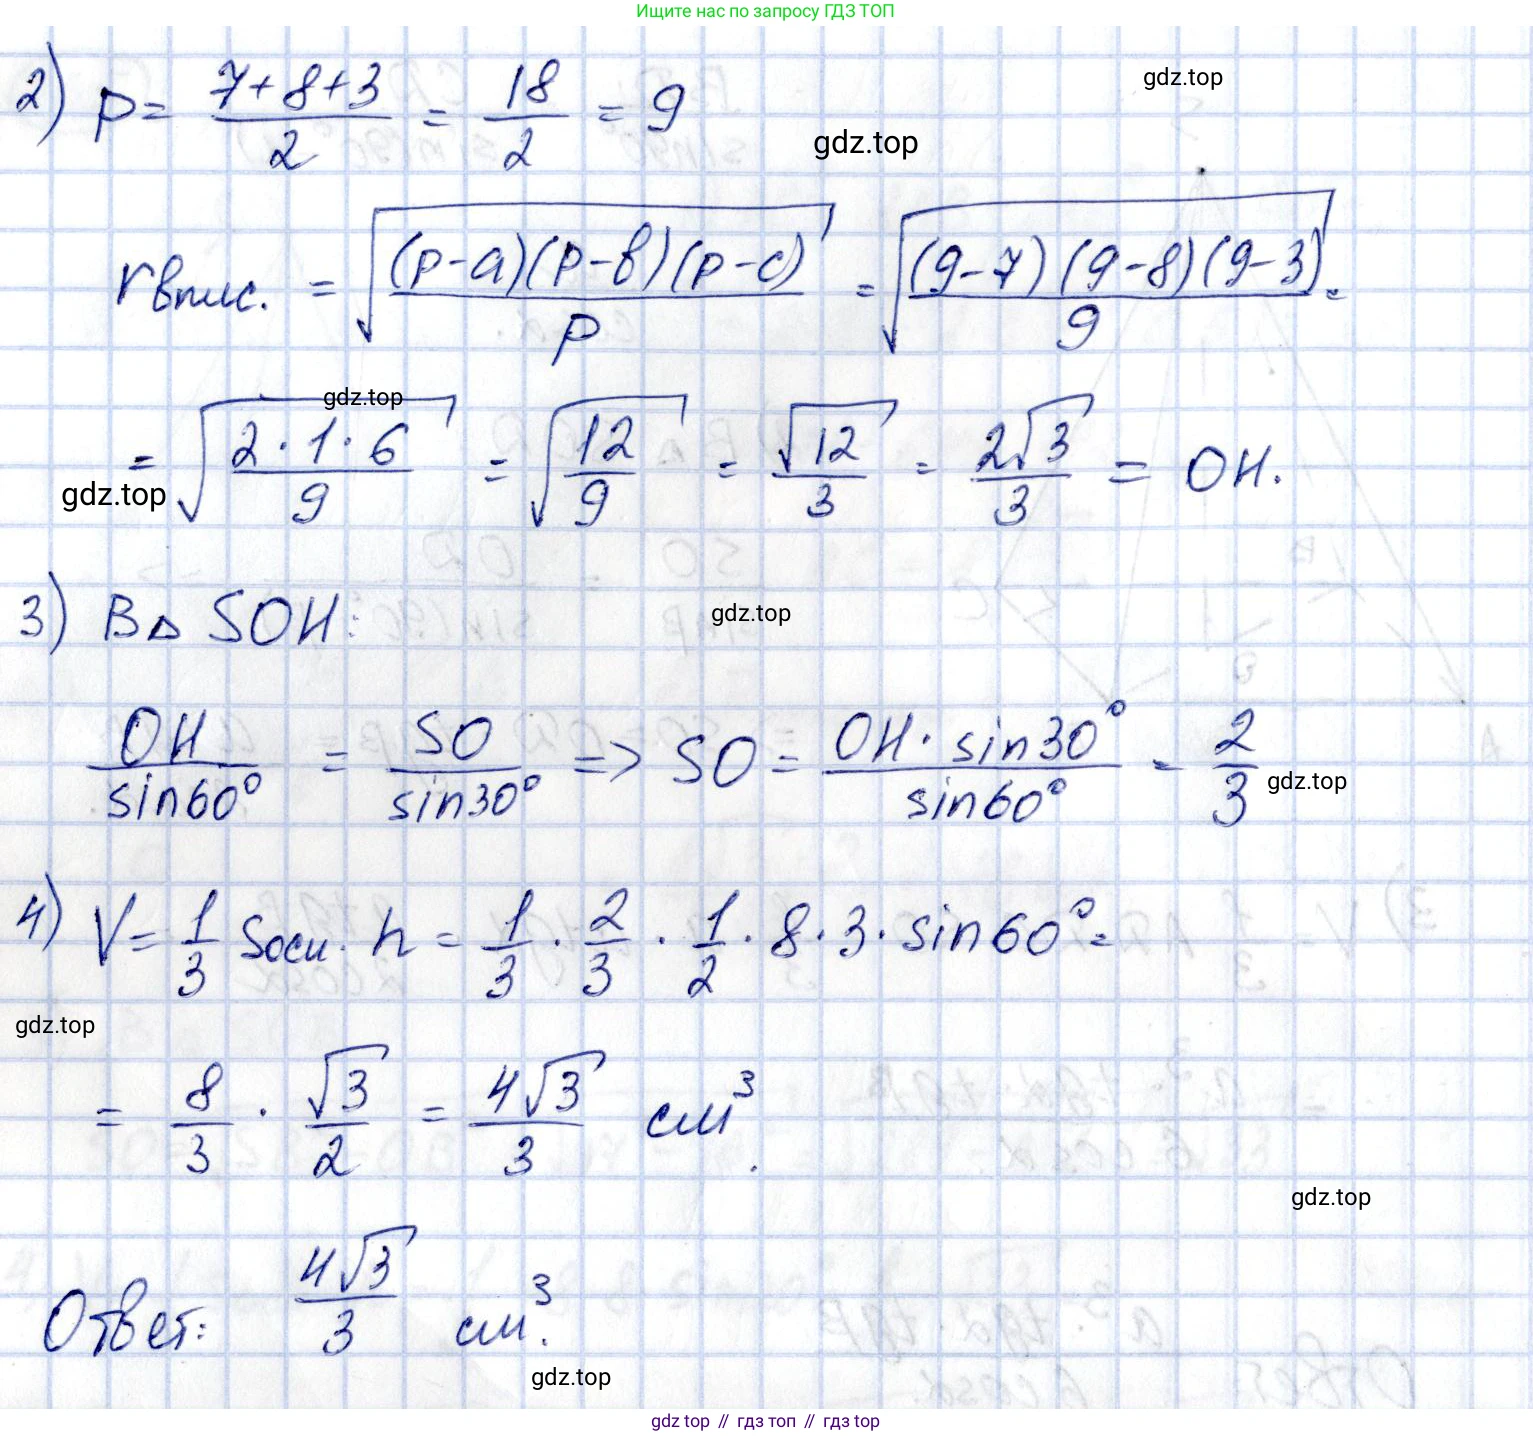 Ищите нас по запросу ГДЗ ТОП
gdz.top
2) p = (7+8+3)/2 = 18/2 = 9
gdz.top
rвпис. = √((p-a)(p-b)(p-c)/p) = √((9-7)(9-8)(9-3)/9) =
gdz.top
= √(2·1·6/9) = √(12/9) = √12/3 = 2√3/3 = OH.
gdz.top
3) В △ SOH:
gdz.top
OH/sin60° = SO/sin30° => SO = OH·sin30°/sin60° = 2/3
gdz.top
4) V = 1/3 Sосн. h = 1/3 · 2/3 · 1/2 · 8 · 3 · sin60° =
gdz.top
= 8/3 · √3/2 = 4√3/3 см³.
gdz.top
Ответ: 4√3/3 см³.
gdz.top
gdz top // гдз топ // гдз top